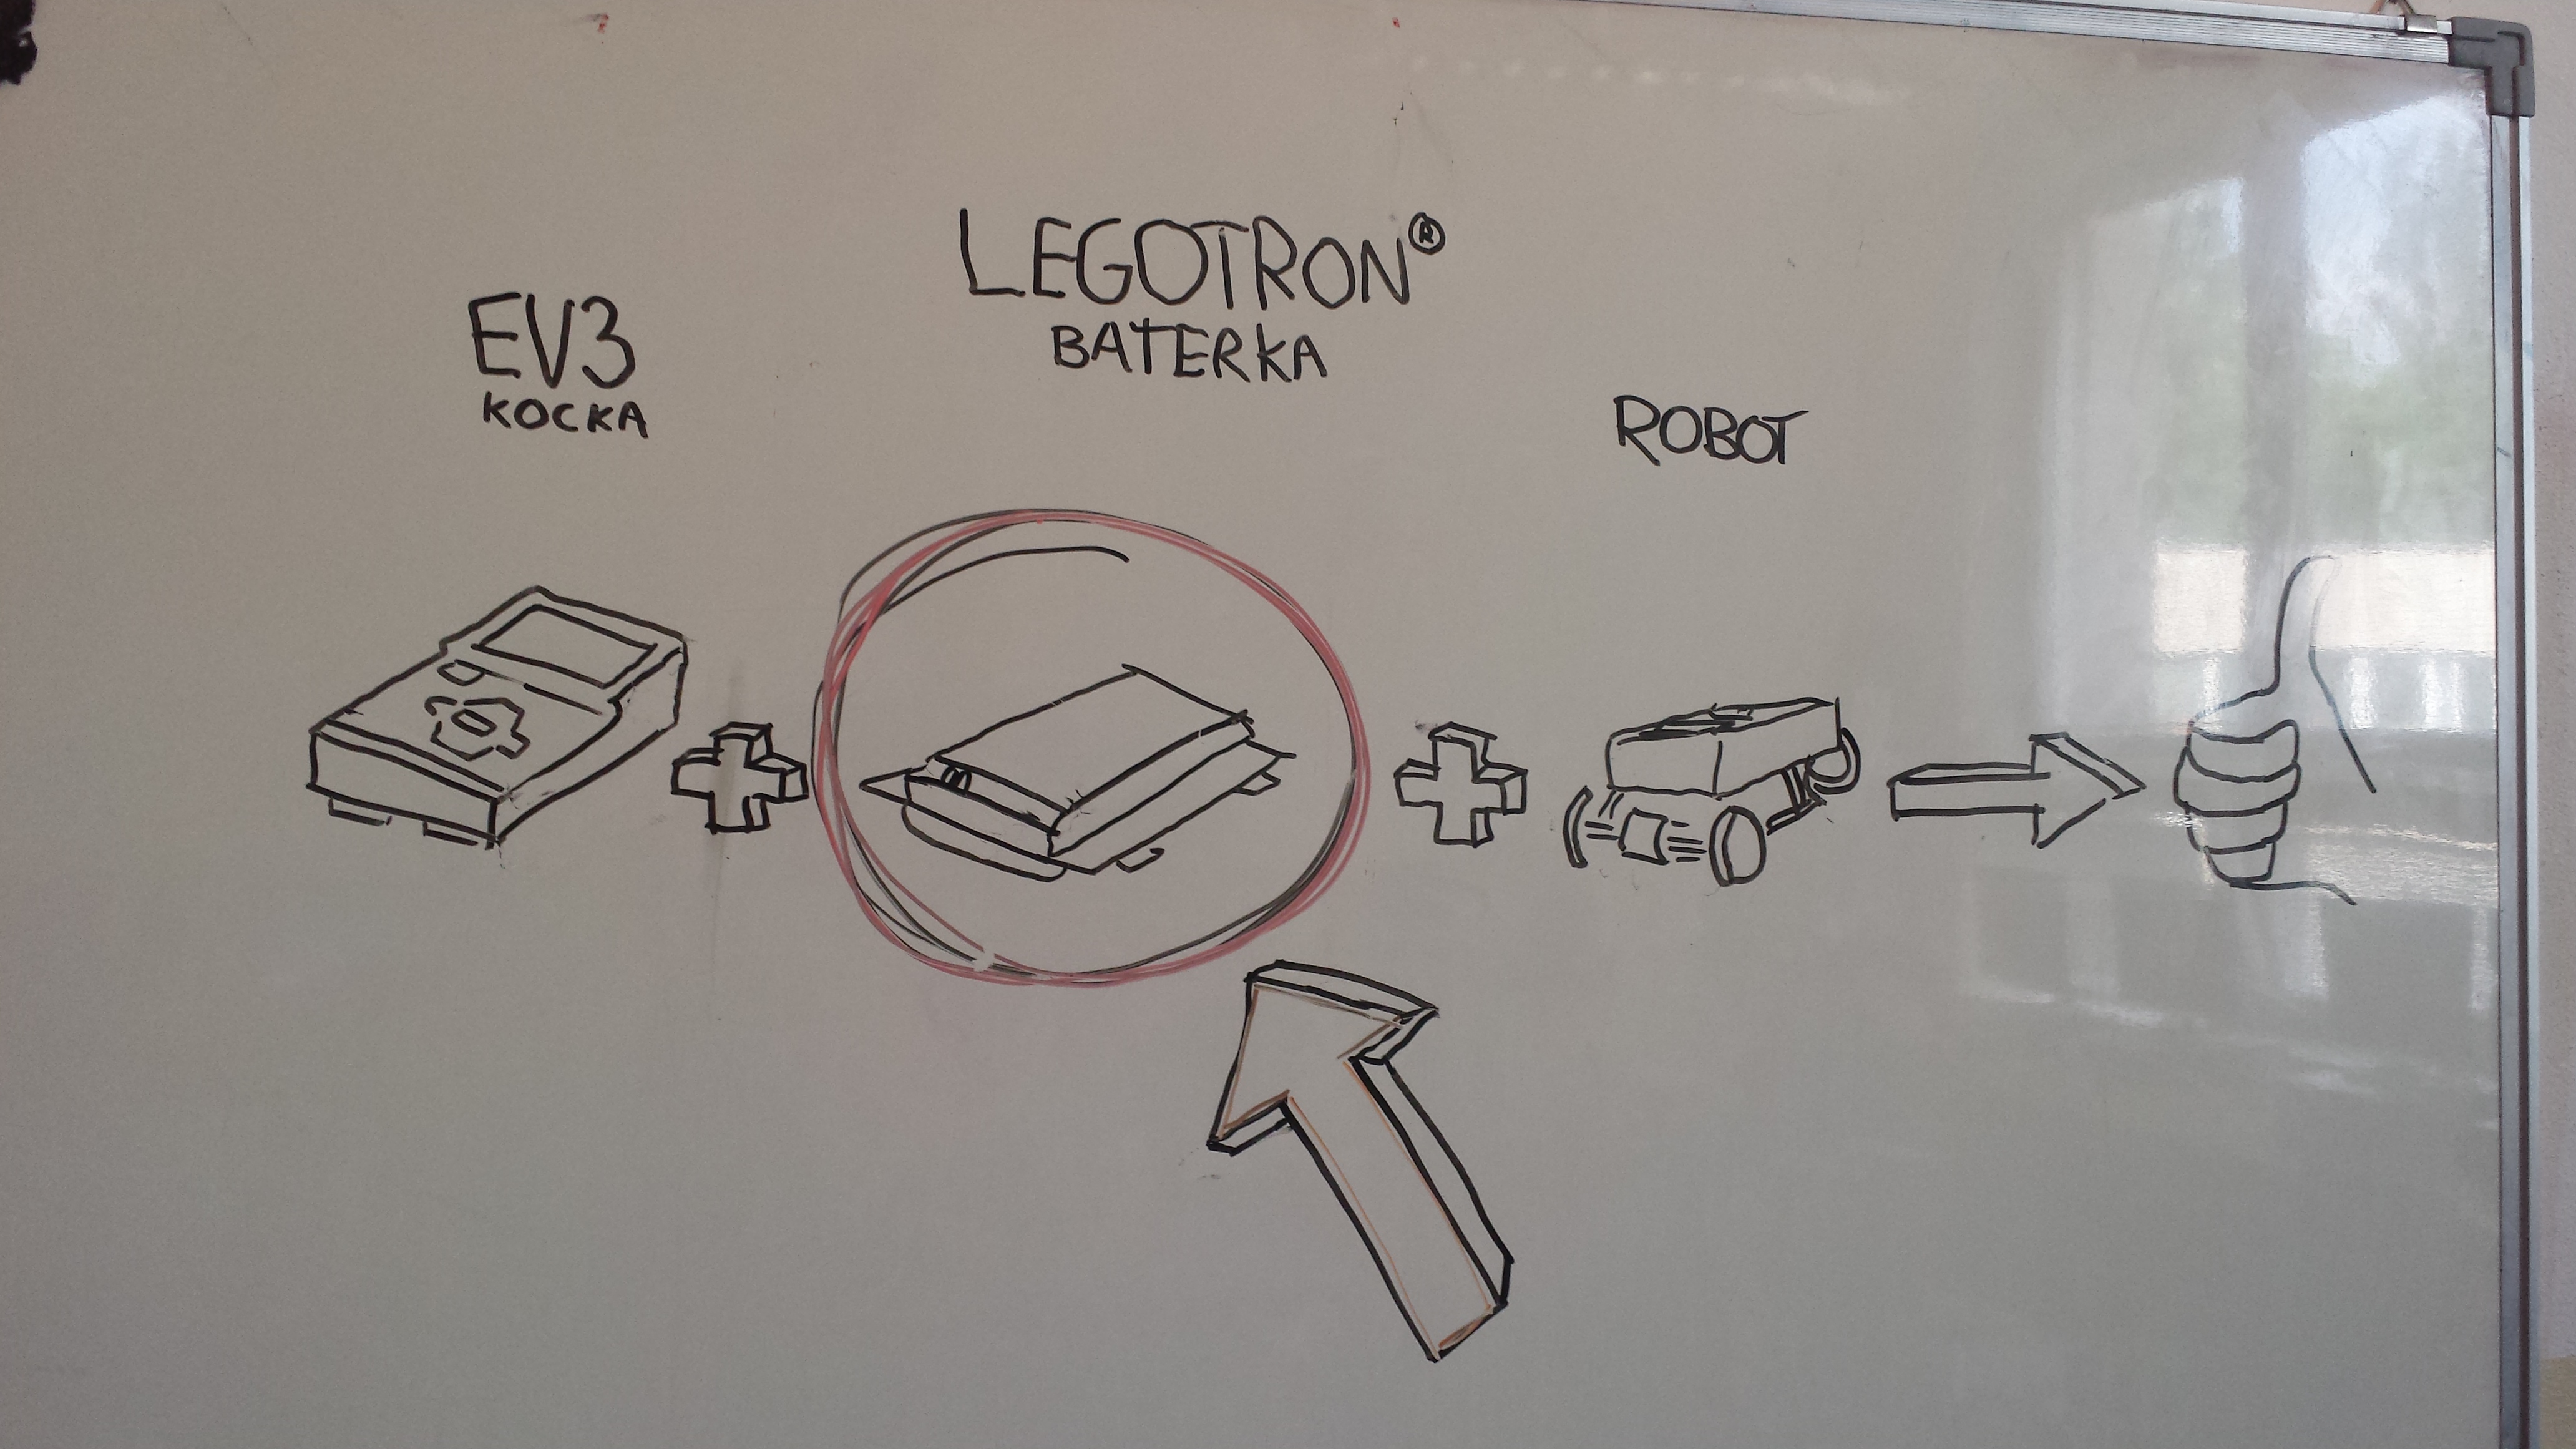 EV3
KOCKA
LEGOTRON®
BATERKA
ROBOT